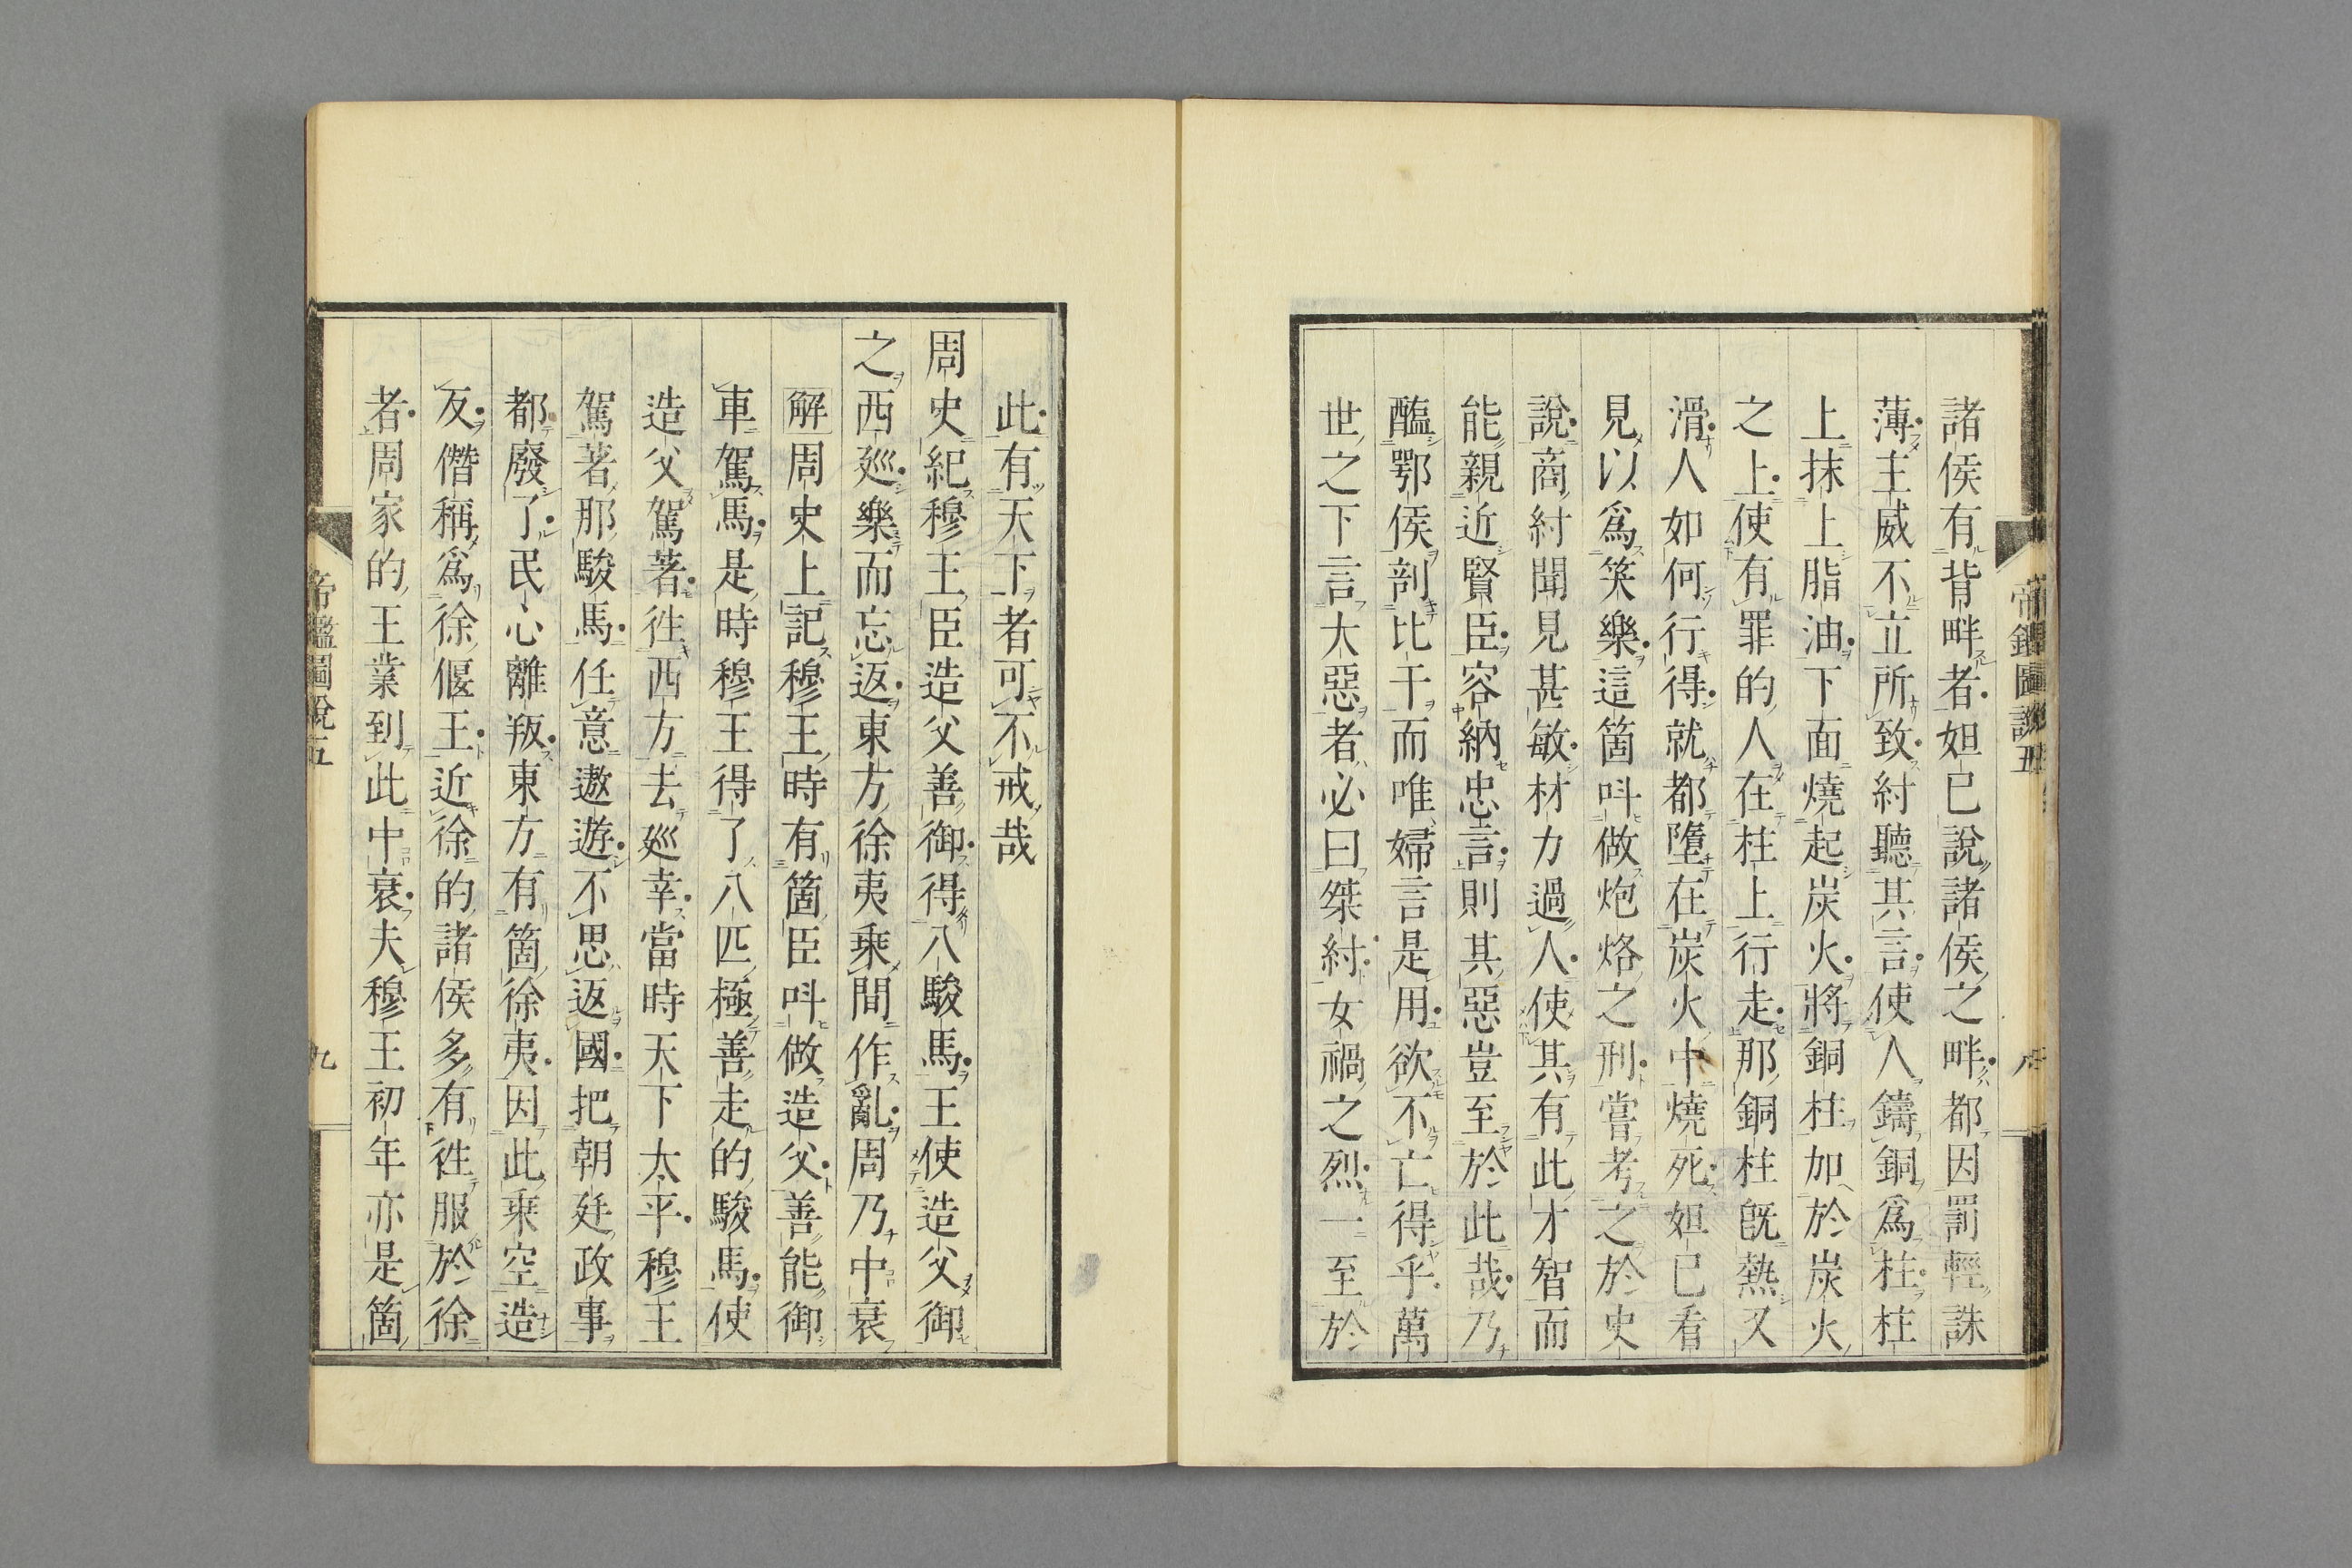 帝鑑圖說五
八
諸侯有背畔者妲已說諸侯之畔都因罰輕誅
薄主威不立所致紂聽其言使人鑄銅爲柱柱
上抹上脂油下面燒起炭火將銅柱加於炭火
之上使有罪的人在柱上行走那銅柱旣熱又
滑人如何行得就都墮在炭火中燒死妲已看
見以爲笑樂這箇呌做炮烙之刑嘗考之於史
說商紂聞見甚敏材力過人使其有此才智而
能親近賢臣容納忠言則其惡豈至於此哉乃
醢鄂侯剖比干而唯婦言是用欲不亡得乎萬
世之下言大惡者必曰桀紂女禍之烈一至於
此有天下者可不戒哉
周史紀穆王臣造父善御得八駿馬王使造父御
之西廵樂而忘返東方徐夷乘間作亂周乃中衰
解周史上記穆王時有箇臣呌做造父善能御
車駕馬是時穆王得了八匹極善走的駿馬使
造父駕著徃西方去廵幸當時天下太平穆王
駕著那駿馬任意遨遊不思返國把朝廷政事
都廢了民心離叛東方有箇徐夷因此乘空造
反僭稱爲徐偃王近徐的諸侯多有徃服於徐
者周家的王業到此中衰夫穆王初年亦是箇
帝鑑圖說五
九